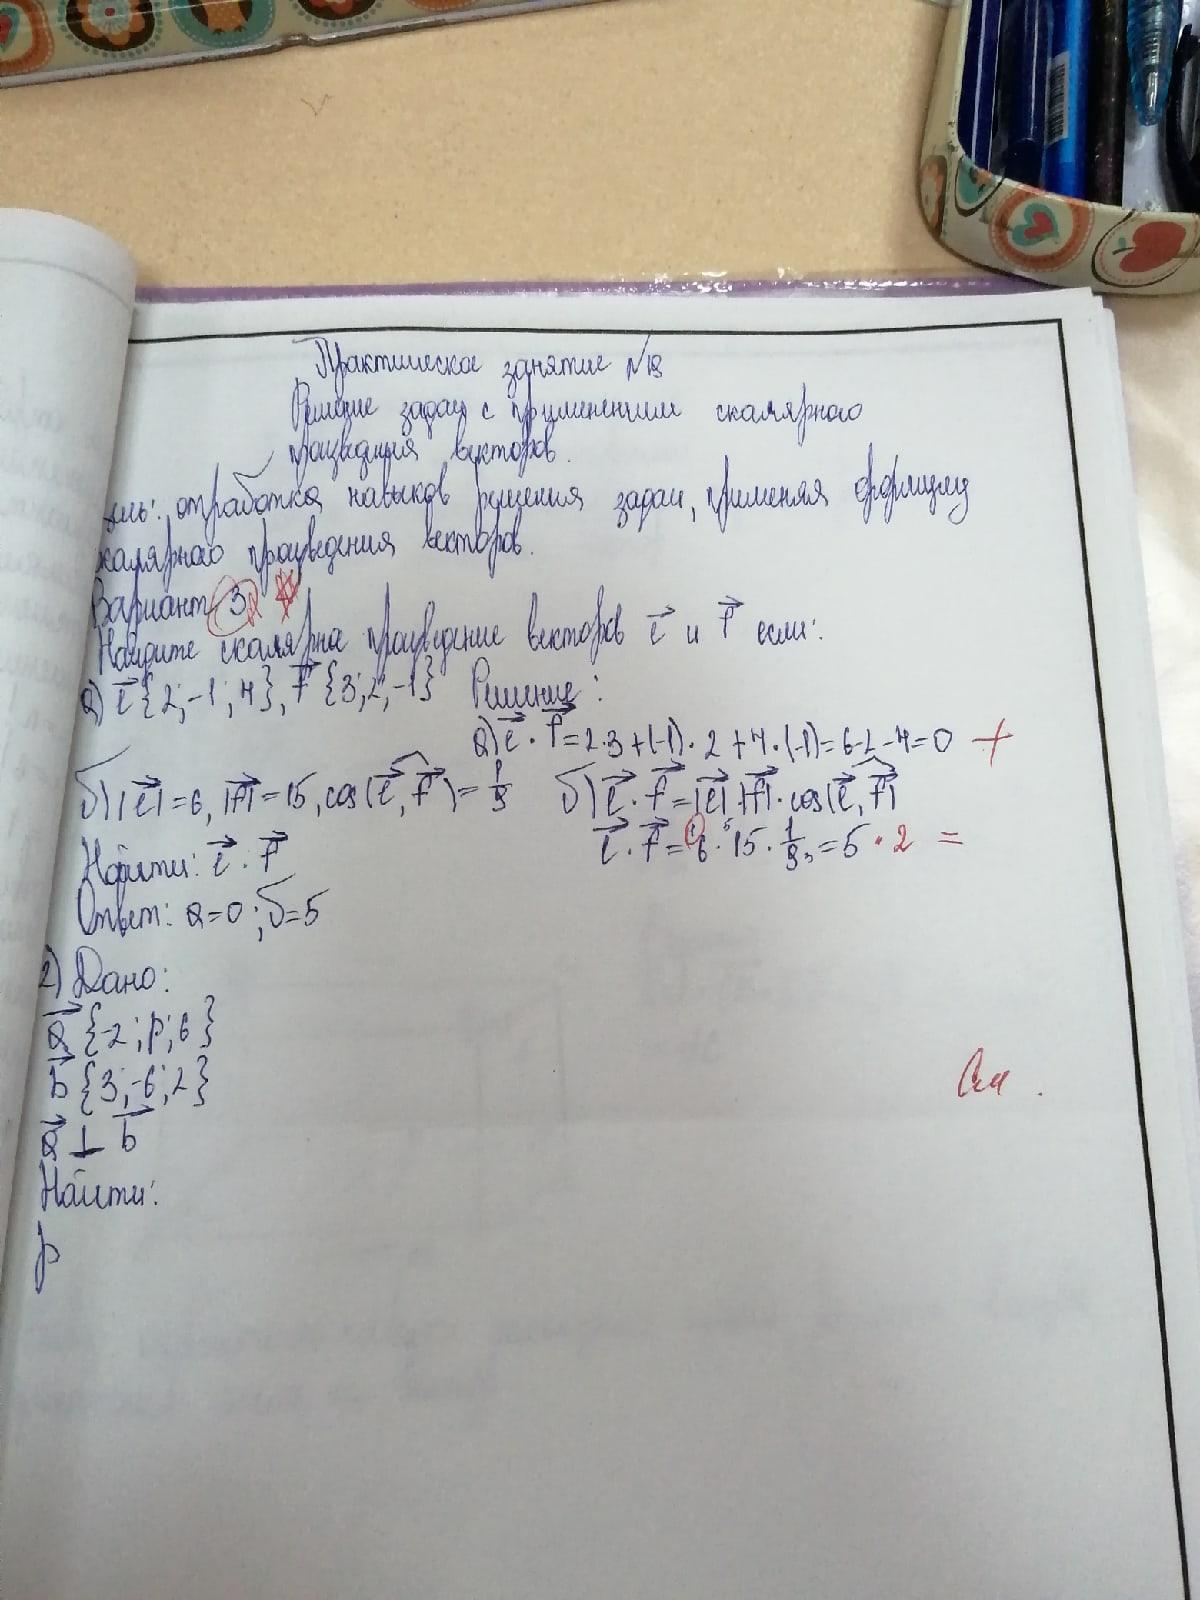 Практическое занятие №18
Решение задач с применением скалярного
произведения векторов.
отработка навыков решения задач, применяя формулу
скалярного произведения векторов.
Вариант 3
Найдите скалярное произведение векторов e и f если:
а) e {2; -1; 4}, f {3; 2; -1} Решение:
а) e · f = 2·3+(-1)·2+4·(-1)=6-2-4=0 +
б) |e|=6, |f|=15, cos(e, f)=1/9 б) e · f = |e| |f| · cos(e, f)
e · f = 6 · 15 · 1/9 = 5 · 2 =
Найти: e · f
Ответ: а=0; б=5
2) Дано:
a {-2; p; 6}
b {3; -6; 2}
a ⊥ b
Найти:
p